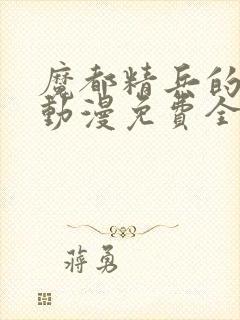 魔都精兵的
動漫免費全
蔣勇